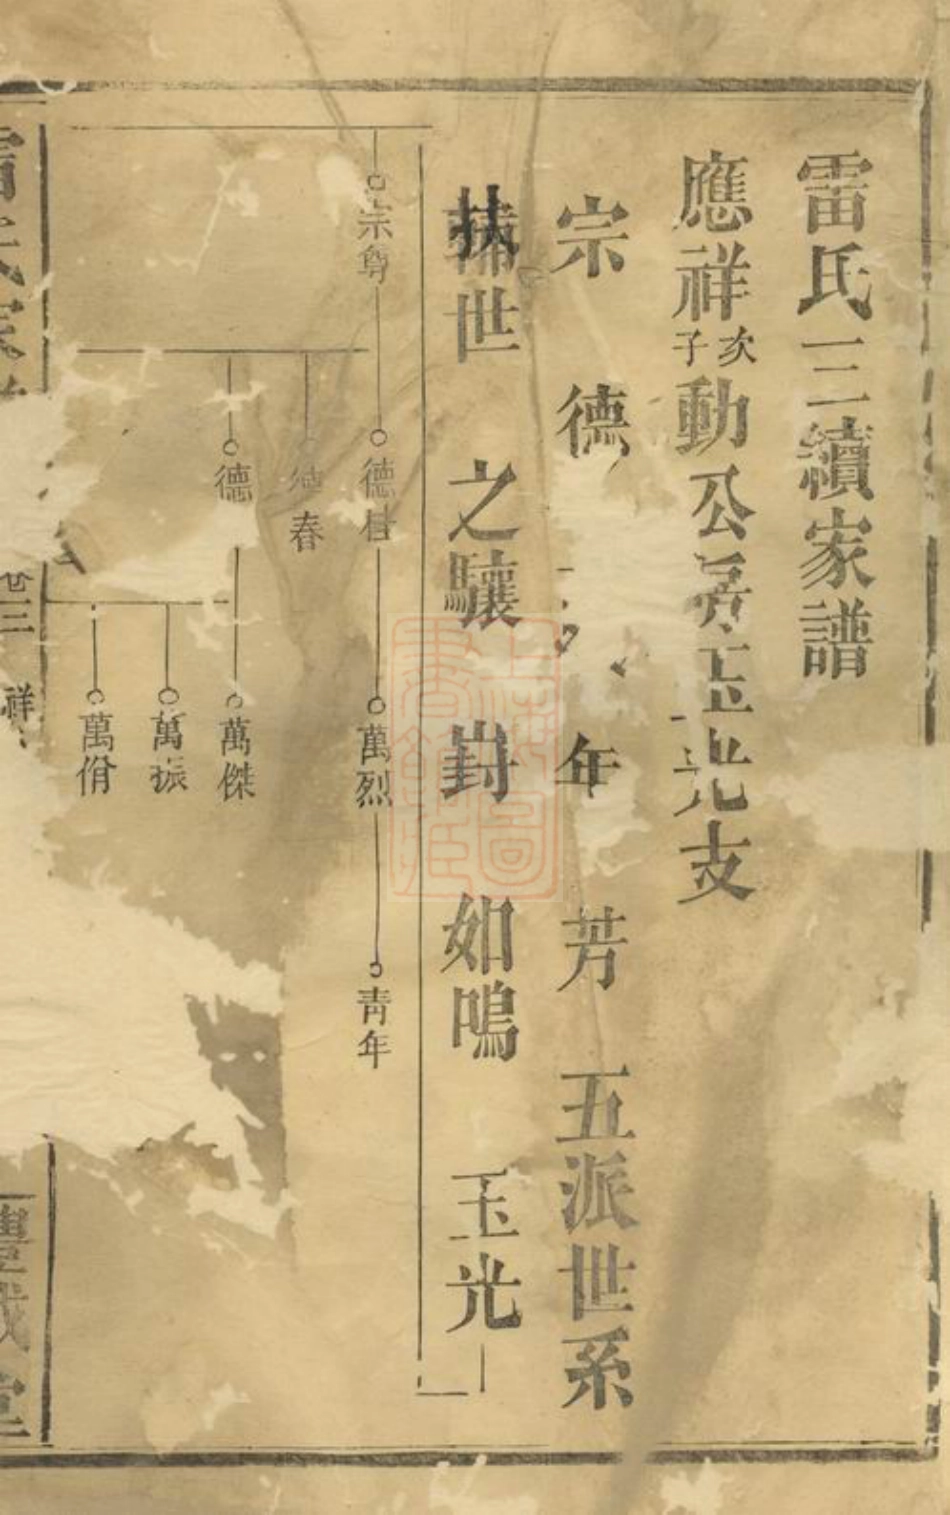 雷氏三續家譜
應祥次子動公 玉光支
宗 德 年 芳 五派世系
世 之驤 封 如鳴 玉光
宗尊 德 萬烈 青年
春
德 萬傑
萬振
萬佾
雷氏家譜 卷三 祥 豐城堂